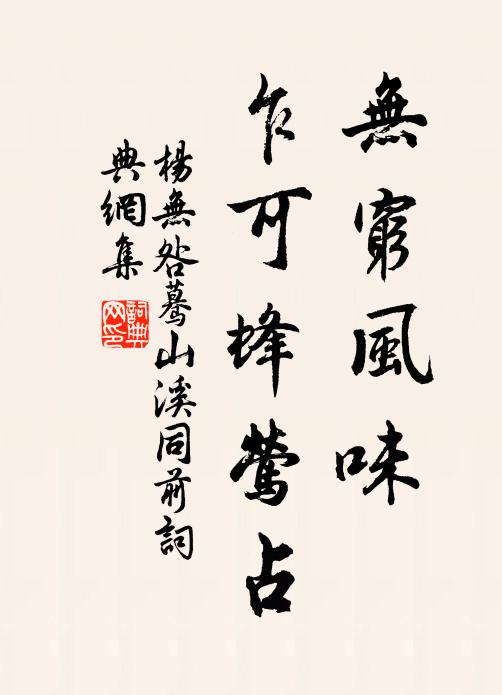 無窮風味
乍可蜂鶯占
楊無咎驀山溪同前詞
典網集
詞典網印